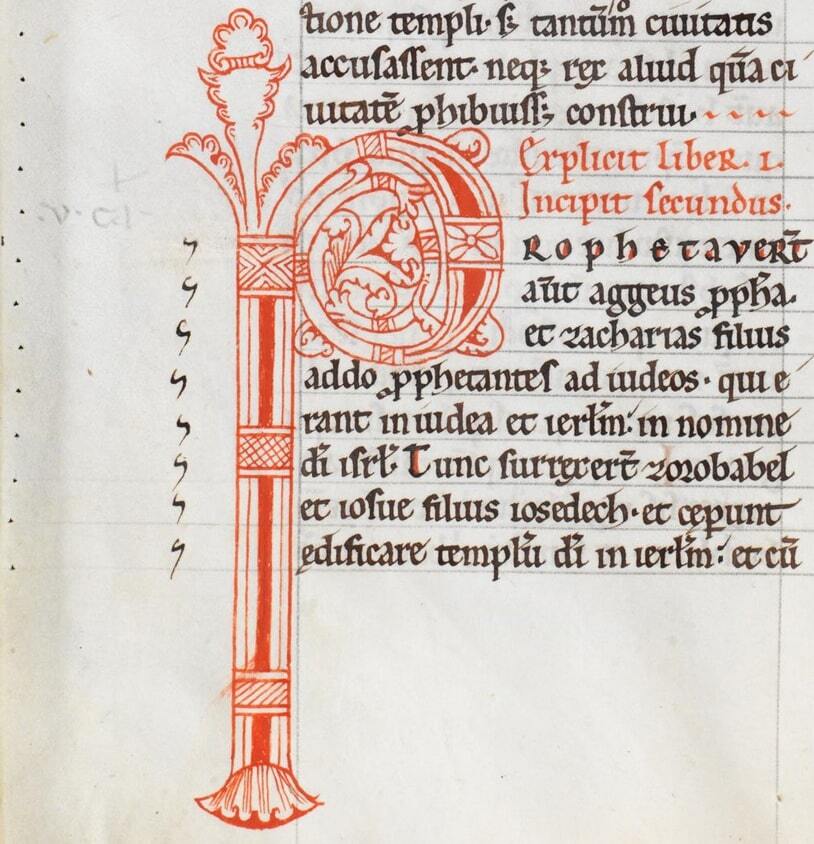 tione templi· s; tantũm̊ ciuitatis
accusassent· neq; rex aliud quã ci
uitatẽ ꝓhibuiss; construi·
Explicit liber. I.
Incipit secundus.
PROphetavert̃
aũt aggeus ꝓph̃a.
et zacharias filius
addo ꝓphetantes ad iudeos· qui e
rant in iudea et ierl̃m: in nomine
dĩ isrł· Tunc surrexert̃ zorobabel
et iosue filius iosedech· et ceꝑunt
edificare templũ dĩ in ierl̃m: et cũ